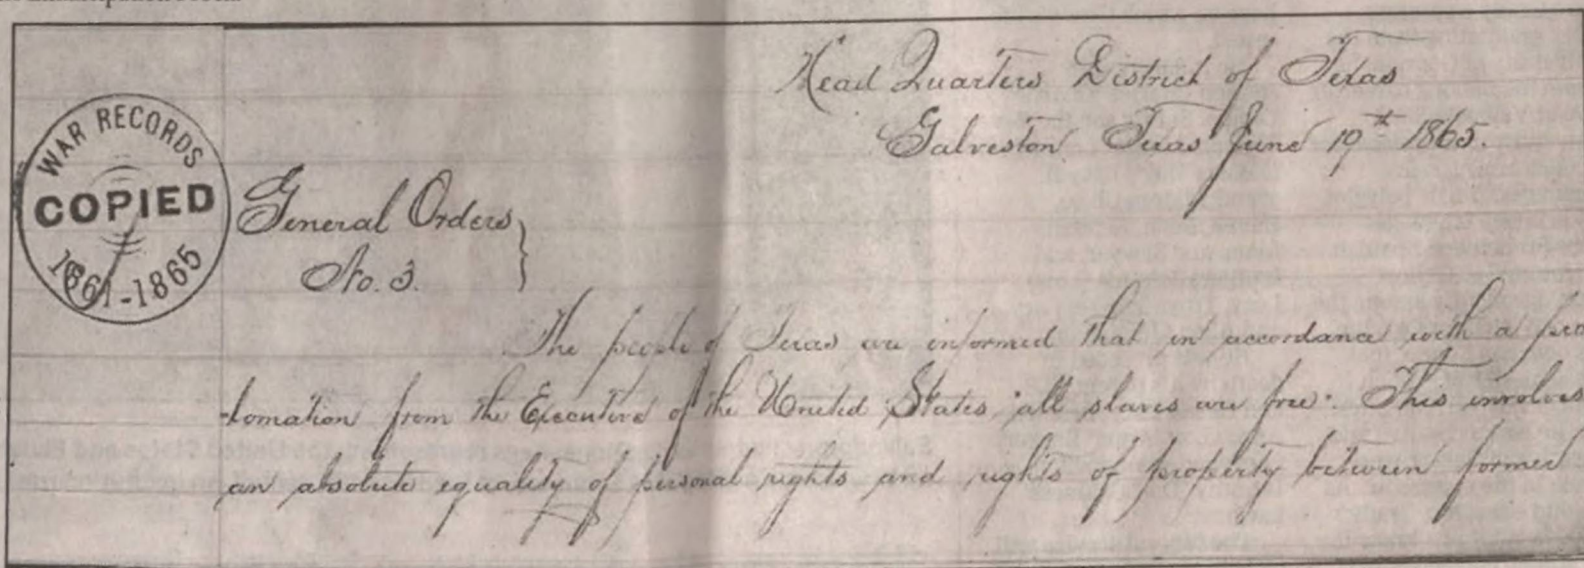 Head Quarters District of Texas
Galveston Texas June 19th 1865.
WAR RECORDS
COPIED
1861-1865
General Orders
No. 3.
The people of Texas are informed that in accordance with a pro
-lamation from the Executive of the United States, "all slaves are free". This involves
an absolute equality of personal rights and rights of property between former